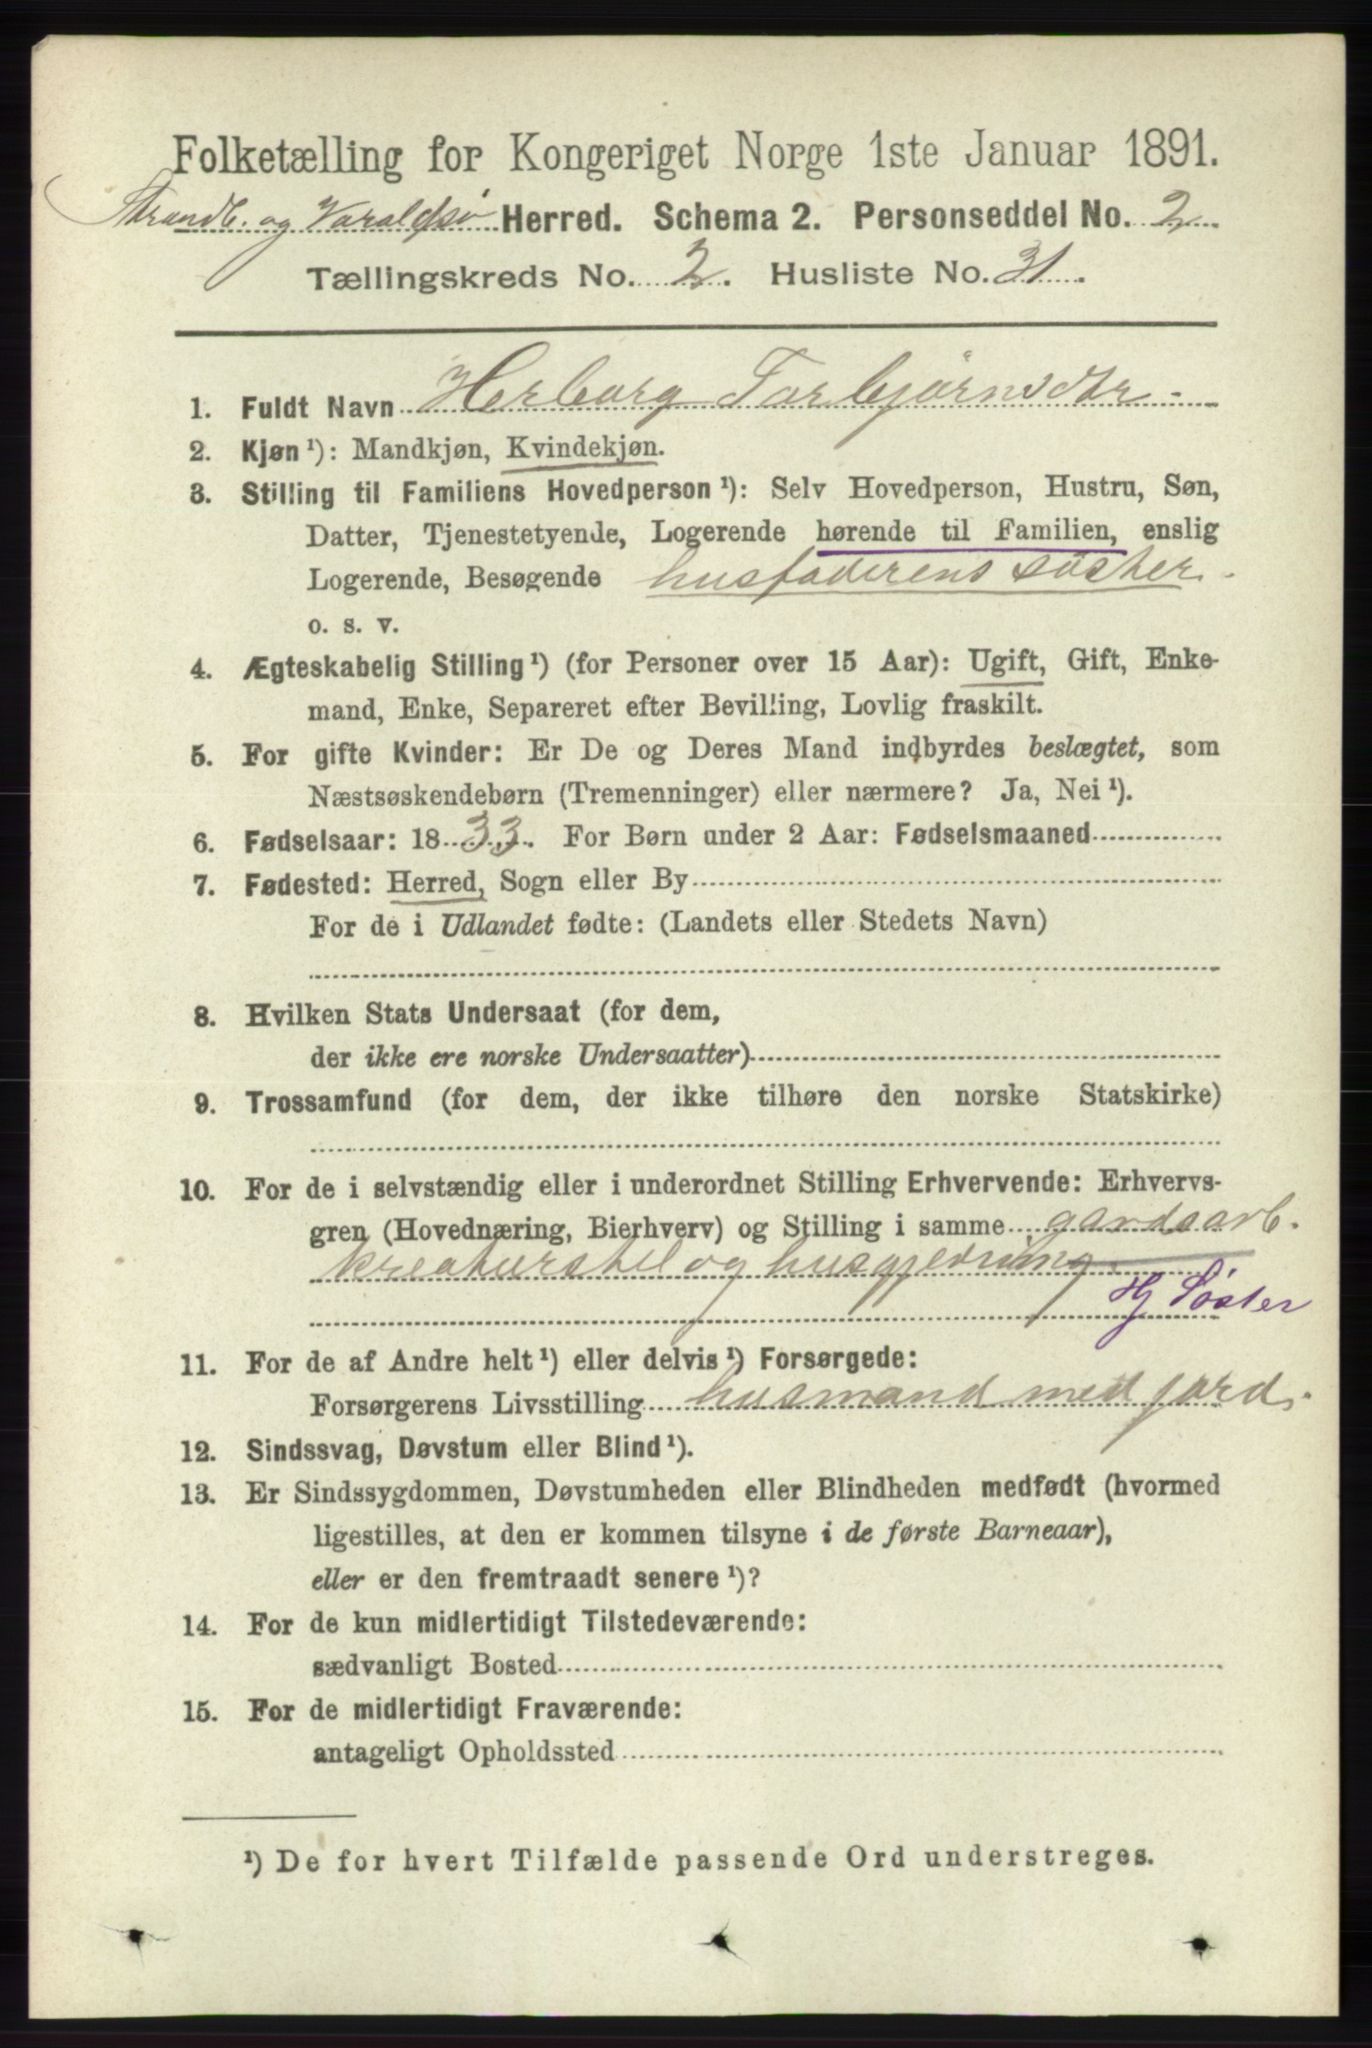 Folketælling for Kongeriget Norge 1ste Januar 1891.
Strandb. og Varaldsø Herred. Schema 2. Personseddel No. 2
Tællingskreds No. 2. Husliste No. 31.
1. Fuldt Navn Herborg Torbjørnsdtr.
2. Kjøn¹): Mandkjøn, Kvindekjøn.
3. Stilling til Familiens Hovedperson¹): Selv Hovedperson, Hustru, Søn,
Datter, Tjenestetyende, Logerende hørende til Familien, enslig
Logerende, Besøgende husfaderens søster.
o. s. v.
4. Ægteskabelig Stilling¹) (for Personer over 15 Aar): Ugift, Gift, Enke-
mand, Enke, Separeret efter Bevilling, Lovlig fraskilt.
5. For gifte Kvinder: Er De og Deres Mand indbyrdes beslægtet, som
Næstsøskendebørn (Tremenninger) eller nærmere? Ja, Nei¹).
6. Fødselsaar: 1833. For Børn under 2 Aar: Fødselsmaaned
7. Fødested: Herred, Sogn eller By
For de i Udlandet fødte: (Landets eller Stedets Navn)
8. Hvilken Stats Undersaat (for dem,
der ikke ere norske Undersaatter)
9. Trossamfund (for dem, der ikke tilhøre den norske Statskirke)
10. For de i selvstændig eller i underordnet Stilling Erhvervende: Erhvervs-
gren (Hovednæring, Bierhverv) og Stilling i samme gardsarb.
kreaturstel og husgjerning.
Hf Søster
11. For de af Andre helt¹) eller delvis¹) Forsørgede:
Forsørgerens Livsstilling husmand med jord.
12. Sindssvag, Døvstum eller Blind¹).
13. Er Sindssygdommen, Døvstumheden eller Blindheden medfødt (hvormed
ligestilles, at den er kommen tilsyne i de første Barneaar),
eller er den fremtraadt senere¹)?
14. For de kun midlertidigt Tilstedeværende:
sædvanligt Bosted
15. For de midlertidigt Fraværende:
antageligt Opholdssted
¹) De for hvert Tilfælde passende Ord understreges.